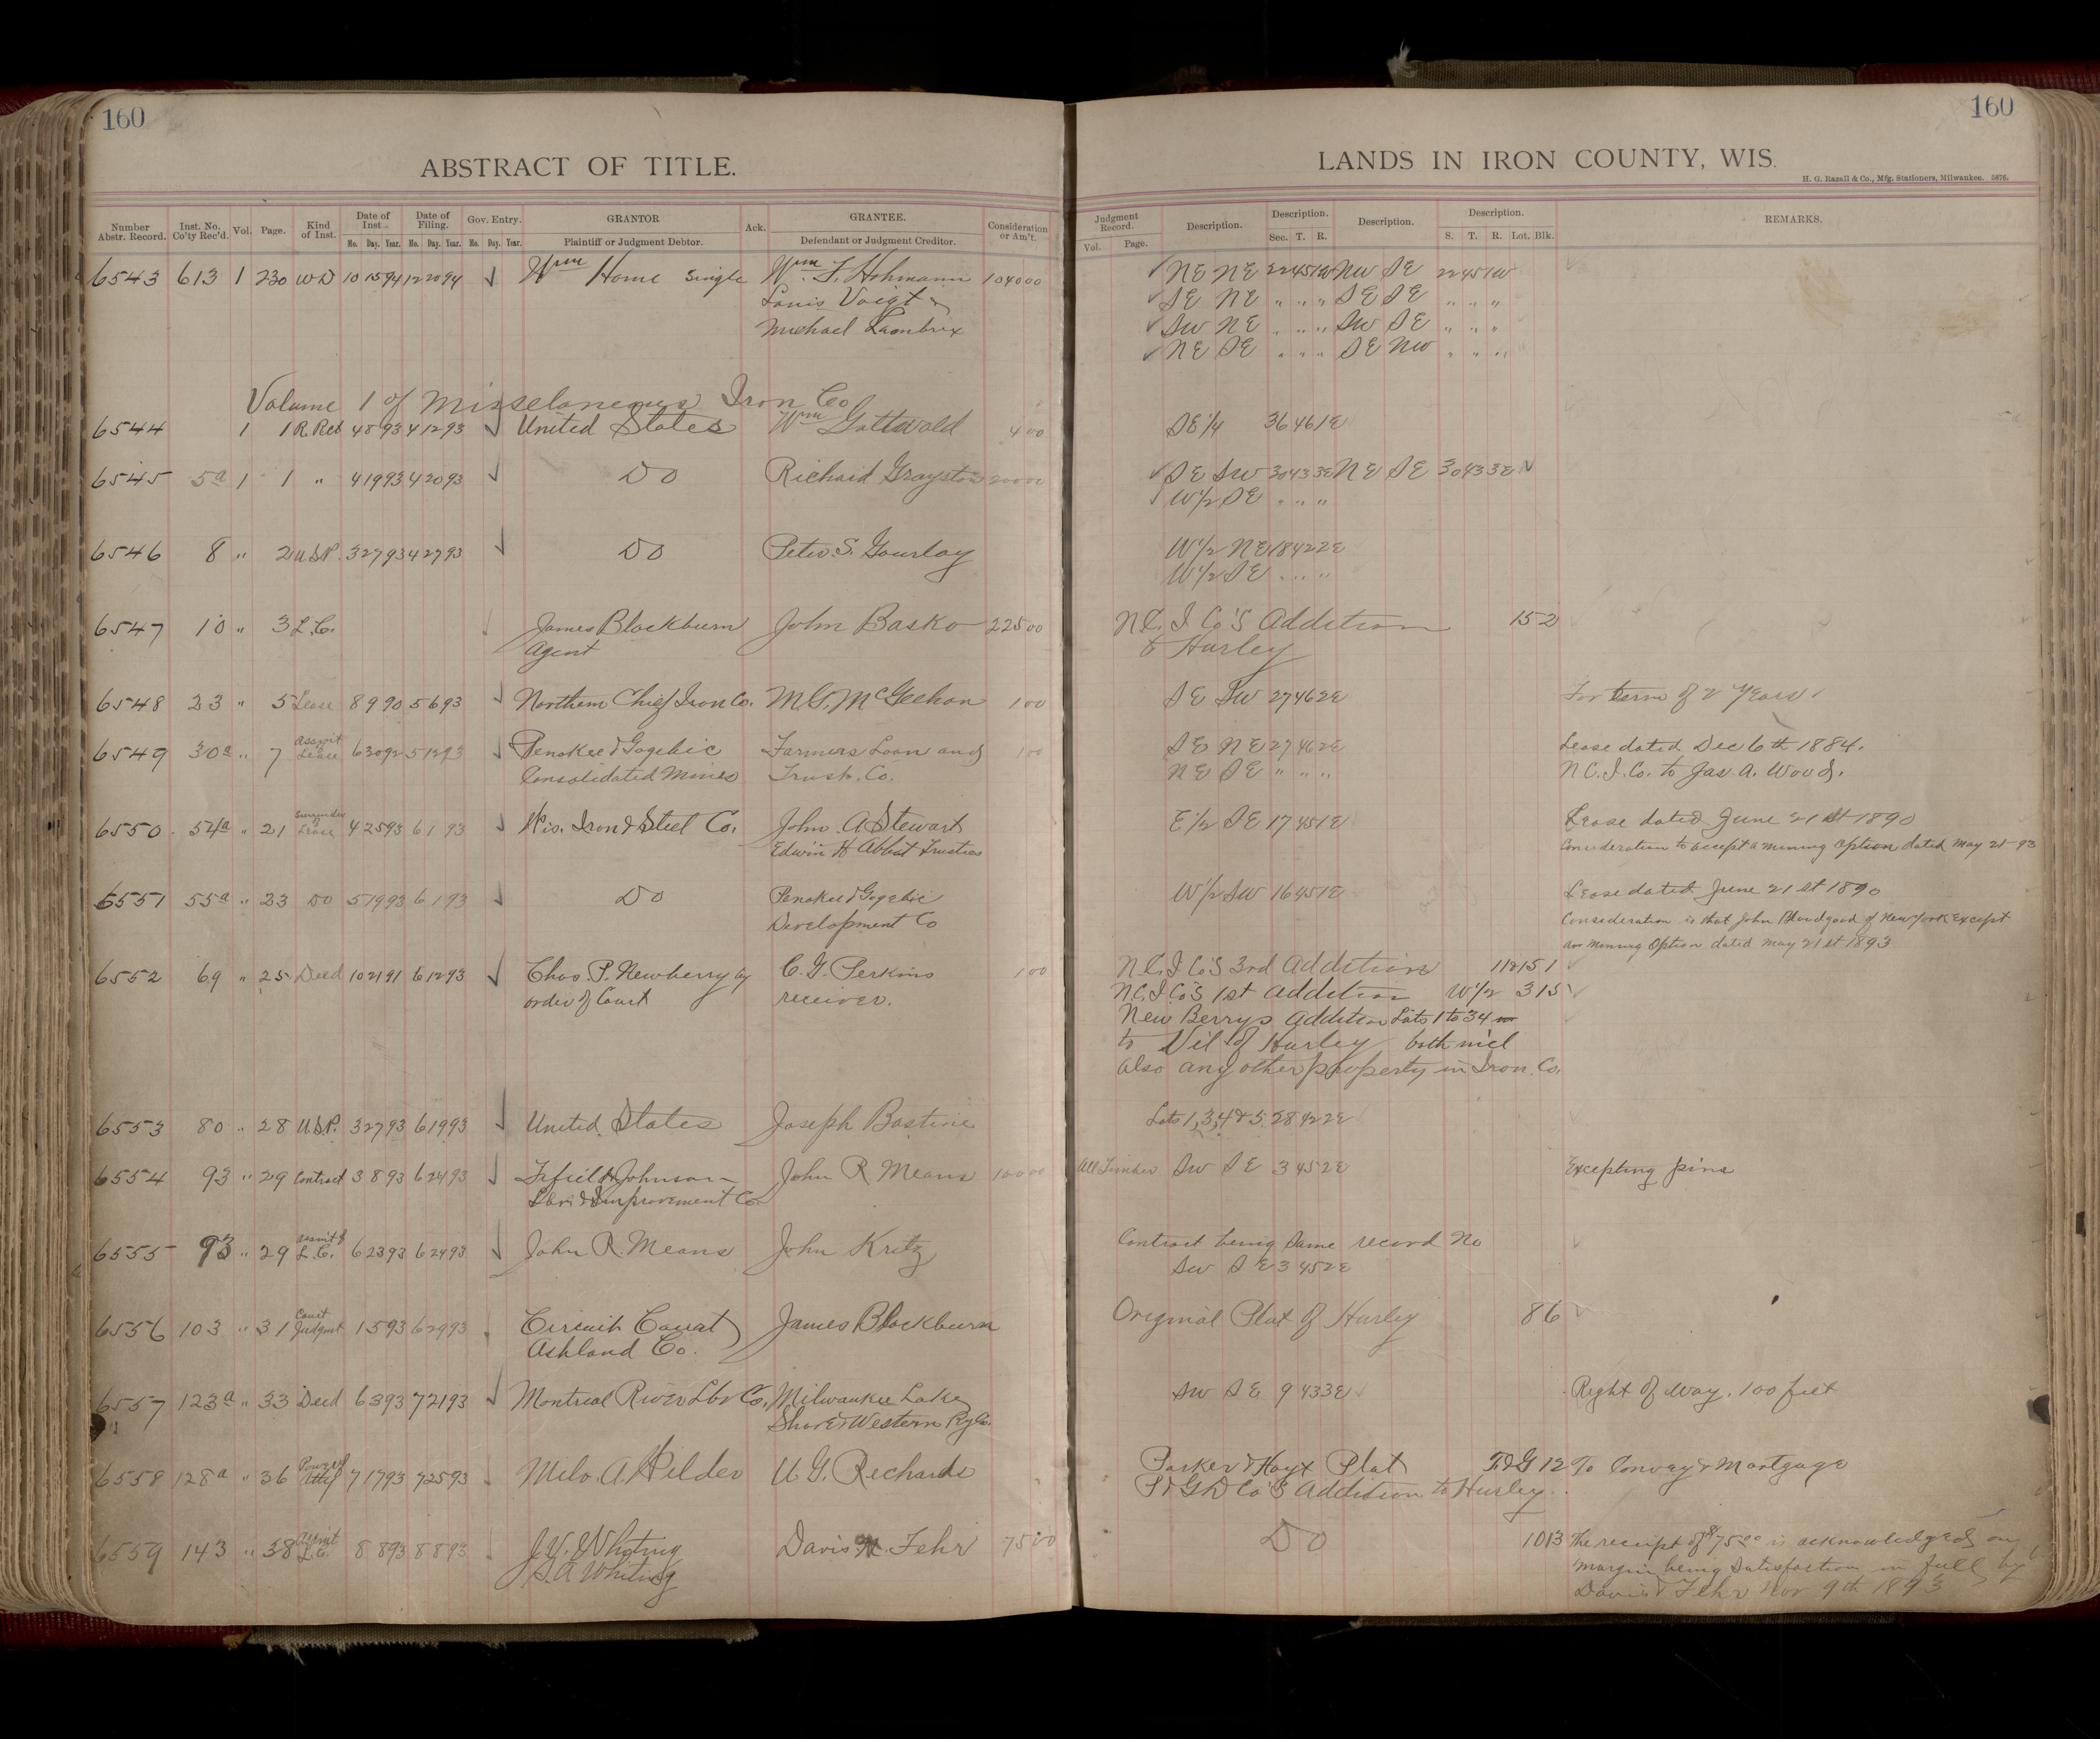 160
160
ABSTRACT OF TITLE.
LANDS IN IRON COUNTY, WIS.
H. G. Razall & Co., Mfg. Stationers, Milwaukee. 5876.
Number Abstr. Record. Inst. No. Co'ty Rec'd. Vol. Page. Kind of Inst. Date of Inst. Mo. Day. Year. Date of Filing. Mo. Day. Year. Gov. Entry. Mo. Day. Year. GRANTOR Plaintiff or Judgment Debtor. Ack. GRANTEE. Defendant or Judgment Creditor. Consideration or Am't.
Judgment Record. Vol. Page. Description. Description. Sec. T. R. Description. Description. S. T. R. Lot. Blk. REMARKS.
6543 613 1 230 WD 10 15 94 12 20 94 Wm Home Single Wm F. Hohmann 1040 00 NE NE 22 45 1W NW SE 22 45 1W
Louis Voigt & SE NE " " " SE SE " " "
Michael Lambrix SW NE " " " SW SE " " "
NE SE " " " SE NW " " "
Volume 1 of Misselaneous Iron Co
6544 1 1 R. Rct 4 8 93 4 12 93 United States Wm Gottwald 4 00 SE 1/4 36 46 1E
6545 5a 1 1 " 4 19 93 4 20 93 DO Richard Grayston 200 00 SE SW 30 43 3E NE SE 30 43 3E
W 1/2 SE " " "
6546 8 " 2 U.S.P. 3 27 93 4 27 93 DO Peter S. Gourlay W 1/2 NE 18 42 2E
W 1/2 SE " " "
6547 10 " 3 L.C. James Blackburn John Basko 225 00 N.C. I Co'S Addition 15 2
Agent to Hurley
6548 23 " 5 Lease 8 9 90 5 6 93 Northern Chief Iron Co. M.G. McGeehan 1 00 SE SW 27 46 2E For term of 2 Years.
6549 30a " 7 Assmt Lease 6 30 92 5 12 93 Penokee & Gogebic Farmers Loan and 1 00 SE NE 27 46 2E Lease dated Dec 6th 1884.
Consolidated Mines Trust. Co. NE SE " " " N.C.I. Co. to Jas. A. Wood.
6550 54a " 21 Surrender of Lease 4 25 93 6 1 93 Wis. Iron & Steel Co. John A Stewart E 1/2 SE 17 45 1E Lease dated June 21st 1890
Edwin H Abbot Trustees Consideration to accept a mining Option dated May 21-93
6551 55a " 23 DO 5 19 93 6 1 93 DO Penokee & Gogebic W 1/2 SW 16 45 1E Lease dated June 21st 1890
Development Co Consideration is that John Bloodgood of New York Except
an Mining Option dated May 21st 1893
6552 69 " 25 Deed 10 21 91 6 12 93 Chas. P. Newberry by C. G. Perkins 1 00 N.C.I Co'S 3rd Addition 1 1/2 15 1
order of Court receiver. N.C.I Co'S 1st Addition W 1/2 3 15
New Berrys Addition Lots 1 to 34
to Vil of Hurley both incl
also any other property in Iron Co.
6553 80 " 28 U.S.P. 3 27 93 6 19 93 United States Joseph Bastine Lots 1, 3, 4 & 5 28 42 2E
6554 93 " 29 Contract 3 8 93 6 24 93 Fifield & Johnson John R Means 100 00 All Timber SW SE 3 45 2E Excepting pine
Lbr & Improvement Co.
6555 93 " 29 Assmt of L.C. 6 23 93 6 24 93 John R. Means John Kritz Contract being Same record No
SW SE 3 45 2E
6556 103 " 31 Court Judgmt 1 5 93 6 29 93 Circuit Court James Blackburn Original Plat of Hurley 8 6
Ashland Co.
6557 123a " 33 Deed 6 3 93 7 21 93 Montreal River Lbr Co. Milwaukee Lake SW SE 9 43 3E Right of Way. 100 feet
Shore & Western Ry Co.
6558 128a " 36 Power of Atty 7 17 93 7 25 93 Milo. A. Wilder U. G. Richards Parker & Hoyt Plat F.&G 12 To Convey & Mortgage
P & G D Co'S Addition to Hurley
6559 143 " 38 Assmt L.C. 8 8 93 8 8 93 J. V. Whiting Davis & Fehr 75 00 DO 10 13 The receipt of $75.00 is acknowledged on
S. A Whiting margin being Satisfaction in full by
Davis & Fehr Nov 9th 1893